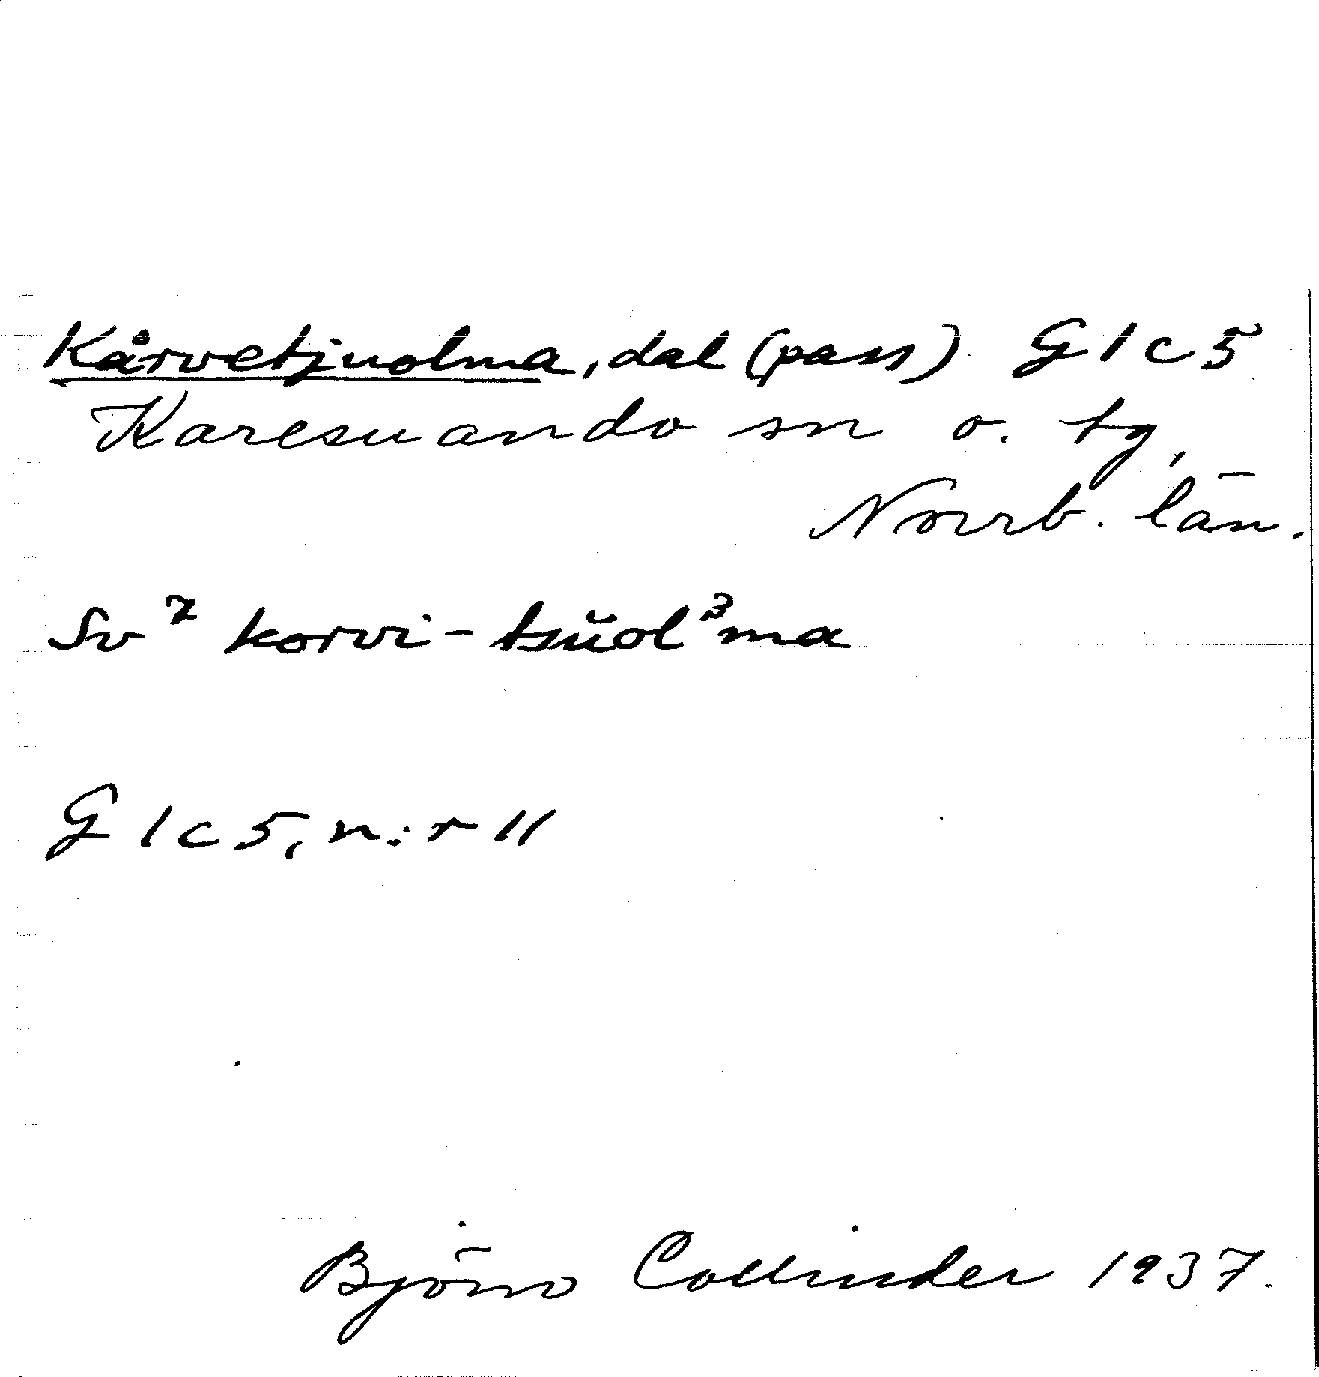 Kårvetjuolma, dal (pass) G1c5
Karesuando sn o. tg,
Norrb. län.
Sv² korvi-tsŭol³ma
G1c5, n:r 11
Björn Collinder 1937.